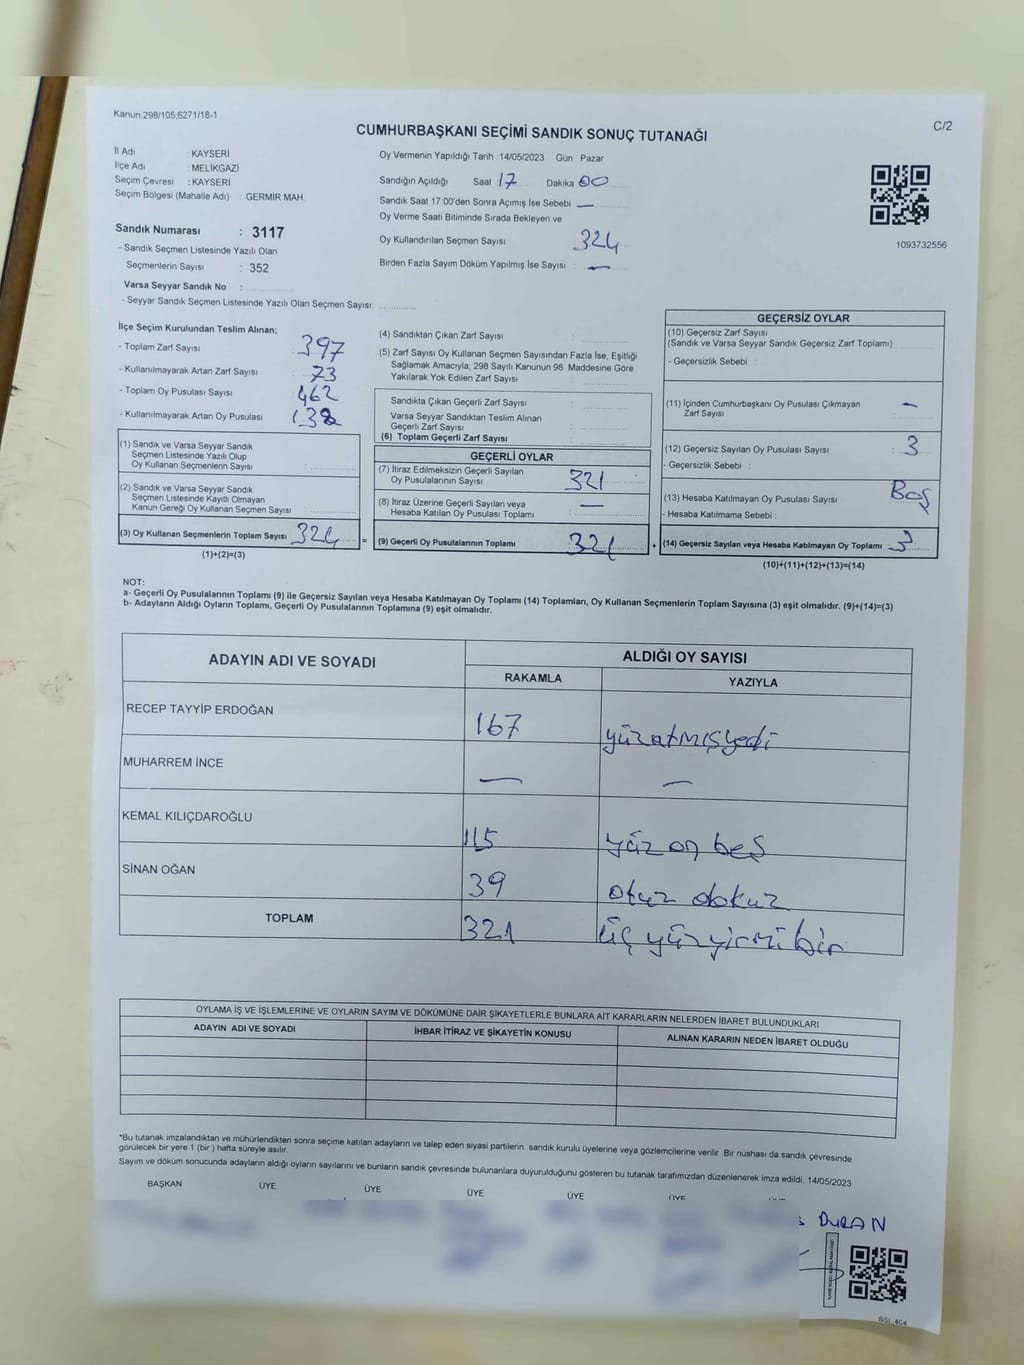 Kanun;298/105,6271/18-1
C/2
CUMHURBAŞKANI SEÇİMİ SANDIK SONUÇ TUTANAĞI
İl Adı : KAYSERİ
İlçe Adı : MELİKGAZİ
Seçim Çevresi : KAYSERİ
Seçim Bölgesi (Mahalle Adı) : GERMİR MAH.
Sandık Numarası : 3117
- Sandık Seçmen Listesinde Yazılı Olan
Seçmenlerin Sayısı : 352
Varsa Seyyar Sandık No :
- Seyyar Sandık Seçmen Listesinde Yazılı Olan Seçmen Sayısı:
Oy Vermenin Yapıldığı Tarih : 14/05/2023 Gün : Pazar
Sandığın Açıldığı Saat 17 Dakika 00
Sandık Saat 17:00'den Sonra Açımış İse Sebebi —
Oy Verme Saati Bitiminde Sırada Bekleyen ve
Oy Kullandırılan Seçmen Sayısı : 324
Birden Fazla Sayım Döküm Yapılmış İse Sayısı : —
1093732556
İlçe Seçim Kurulundan Teslim Alınan;
- Toplam Zarf Sayısı : 397
- Kullanılmayarak Artan Zarf Sayısı : 73
- Toplam Oy Pusulası Sayısı : 462
- Kullanılmayarak Artan Oy Pusulası : 138
(1) Sandık ve Varsa Seyyar Sandık
Seçmen Listesinde Yazılı Olup
Oy Kullanan Seçmenlerin Sayısı :
(2) Sandık ve Varsa Seyyar Sandık
Seçmen Listesinde Kayıtlı Olmayan
Kanun Gereği Oy Kullanan Seçmen Sayısı :
(3) Oy Kullanan Seçmenlerin Toplam Sayısı : 324 =
(1)+(2)=(3)
(4) Sandıktan Çıkan Zarf Sayısı :
(5) Zarf Sayısı Oy Kullanan Seçmen Sayısından Fazla İse, Eşitliği
Sağlamak Amacıyla; 298 Sayılı Kanunun 98. Maddesine Göre
Yakılarak Yok Edilen Zarf Sayısı :
Sandıkta Çıkan Geçerli Zarf Sayısı :
Varsa Seyyar Sandıktan Teslim Alınan
Geçerli Zarf Sayısı :
(6) Toplam Geçerli Zarf Sayısı :
GEÇERLİ OYLAR
(7) İtiraz Edilmeksizin Geçerli Sayılan
Oy Pusulalarının Sayısı : 321
(8) İtiraz Üzerine Geçerli Sayılan veya
Hesaba Katılan Oy Pusulası Toplamı : —
(9) Geçerli Oy Pusulalarının Toplamı : 321 +
GEÇERSİZ OYLAR
(10) Geçersiz Zarf Sayısı
(Sandık ve Varsa Seyyar Sandık Geçersiz Zarf Toplamı) :
- Geçersizlik Sebebi :
(11) İçinden Cumhurbaşkanı Oy Pusulası Çıkmayan
Zarf Sayısı : —
(12) Geçersiz Sayılan Oy Pusulası Sayısı : 3
- Geçersizlik Sebebi :
(13) Hesaba Katılmayan Oy Pusulası Sayısı : Boş
- Hesaba Katılmama Sebebi :
(14) Geçersiz Sayılan veya Hesaba Katılmayan Oy Toplamı : 3
(10)+(11)+(12)+(13)=(14)
NOT:
a- Geçerli Oy Pusulalarının Toplamı (9) ile Geçersiz Sayılan veya Hesaba Katılmayan Oy Toplamı (14) Toplamları, Oy Kullanan Seçmenlerin Toplam Sayısına (3) eşit olmalıdır. (9)+(14)=(3)
b- Adayların Aldığı Oyların Toplamı, Geçerli Oy Pusulalarının Toplamına (9) eşit olmalıdır.
ADAYIN ADI VE SOYADI
ALDIĞI OY SAYISI
RAKAMLA YAZIYLA
RECEP TAYYİP ERDOĞAN 167 yüzatmışyedi
MUHARREM İNCE — —
KEMAL KILIÇDAROĞLU 115 yüz on beş
SİNAN OĞAN 39 otuz dokuz
TOPLAM 321 üç yüz yirmi bir
OYLAMA İŞ VE İŞLEMLERİNE VE OYLARIN SAYIM VE DÖKÜMÜNE DAİR ŞİKAYETLERLE BUNLARA AİT KARARLARIN NELERDEN İBARET BULUNDUKLARI
ADAYIN ADI VE SOYADI İHBAR İTİRAZ VE ŞİKAYETİN KONUSU ALINAN KARARIN NEDEN İBARET OLDUĞU
*Bu tutanak imzalandıktan ve mühürlendikten sonra seçime katılan adayların ve talep eden siyasi partilerin sandık kurulu üyelerine veya gözlemcilerine verilir. Bir nüshası da sandık çevresinde
görülecek bir yere 1 (bir) hafta süreyle asılır.
Sayım ve döküm sonucunda adayların aldığı oyların sayılarını ve bunların sandık çevresinde bulunanlara duyurulduğunu gösteren bu tutanak tarafımızdan düzenlenerek imza edildi. 14/05/2023
BAŞKAN ÜYE ÜYE ÜYE ÜYE ÜYE
DURAN